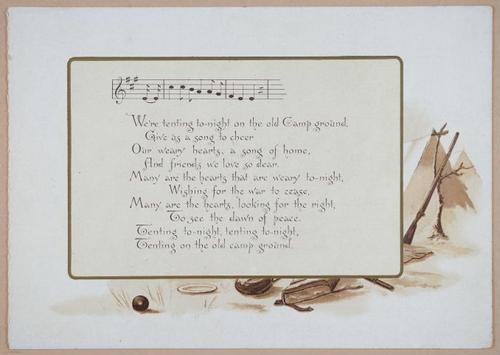 "We're tenting to-night on the old Camp-ground,
Give us a song to cheer
Our weary hearts, a song of home,
And friends we love so dear.
Many are the hearts that are weary to-night,
Wishing for the war to cease,
Many are the hearts, looking for the right,
To see the dawn of peace.
Tenting to-night, tenting to-night,
Tenting on the old camp ground.